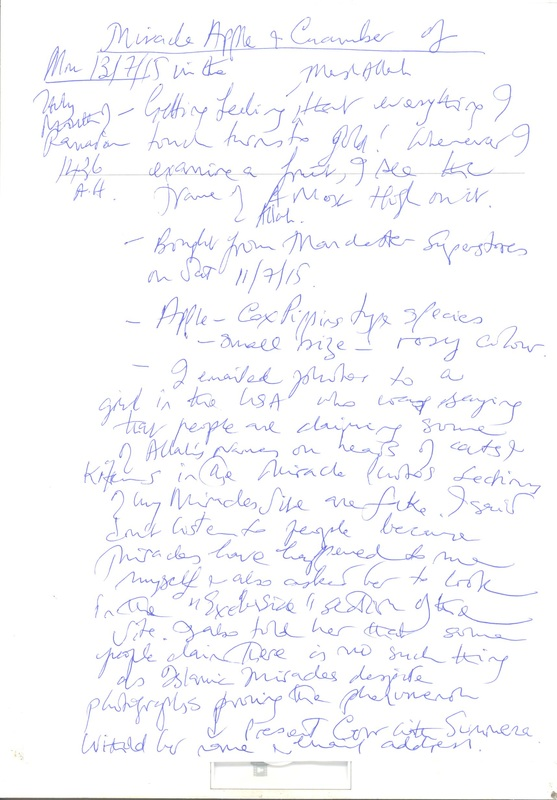 Miracle Apple & Cucumber of
Mon 13/7/15 in the MashAllah
Holy Month of – Getting feeling that everything I
Ramadan touch turns to gold! Whenever I
1436 examine a fruit, I see the
A.H. Name of Most High on it.
Allah.
– Bought from Manchester Superstores
on Sat 11/7/15.
– Apple – Cox Pippins type species
– small size – rosy colour.
– I emailed photos to a
girl in the USA who was saying
that people are claiming some
of Allah's names on heads of cats &
Kittens in the Miracle Photos section
of my Miracles Site are fake. I said
dont listen to people because
Miracles have happened to me
myself & also asked her to look
in the "Exclusive" section of the
Site. I also told her that some
people claim there is no such thing
as Islamic Miracles despite
photographs proving the phenomenon
Present Corr with
her name & email address.